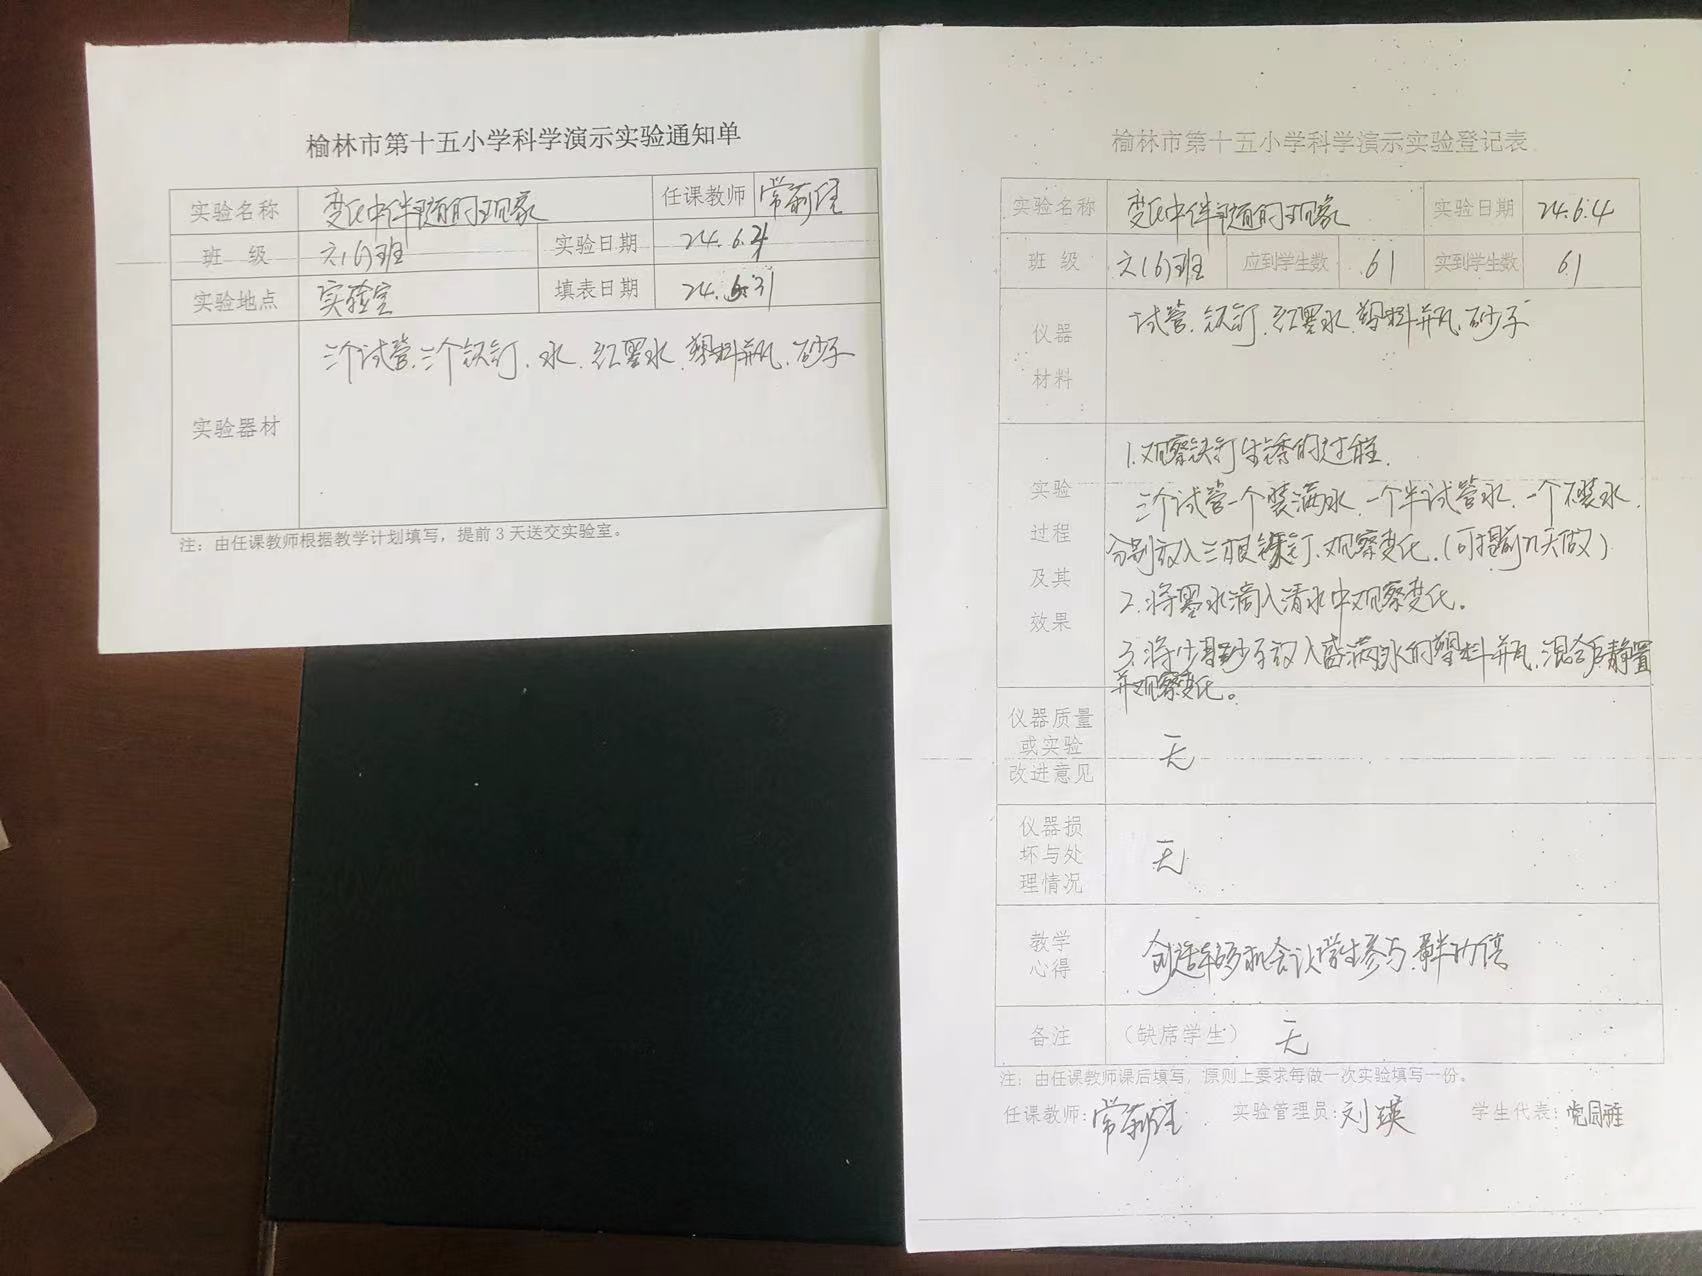 榆林市第十五小学科学演示实验通知单
实验名称 变化中伴随的现象 任课教师 常
班 级 六(6)班 实验日期 24.6.4
实验地点 实验室 填表日期 24. 31
实验器材 三个试管.三个铁钉.水.红墨水.塑料瓶.砂子
注:由任课教师根据教学计划填写,提前3天送交实验室。
榆林市第十五小学科学演示实验登记表
实验名称 变化中伴随的现象 实验日期 24.6.4
班 级 六(6)班 应到学生数 61 实到学生数 61
仪器材料 试管.铁钉.红墨水.塑料瓶.砂子
实验过程及其效果
1.观察铁钉生锈的过程.
三个试管一个装满水.一个半试管水.一个不装水.
分别放入三根铁钉.观察变化.(可提前几天做)
2.将墨水滴入清水中观察变化。
3.将少量砂子放入盛满水的塑料瓶.混合后静置
并观察变化。
仪器质量或实验改进意见 无
仪器损坏与处理情况 无
教学心得 创造足够机会让学生参与.事半功倍
备注 (缺席学生) 无
注:由任课教师课后填写,原则上要求每做一次实验填写一份。
任课教师:常 实验管理员:刘瑛 学生代表: